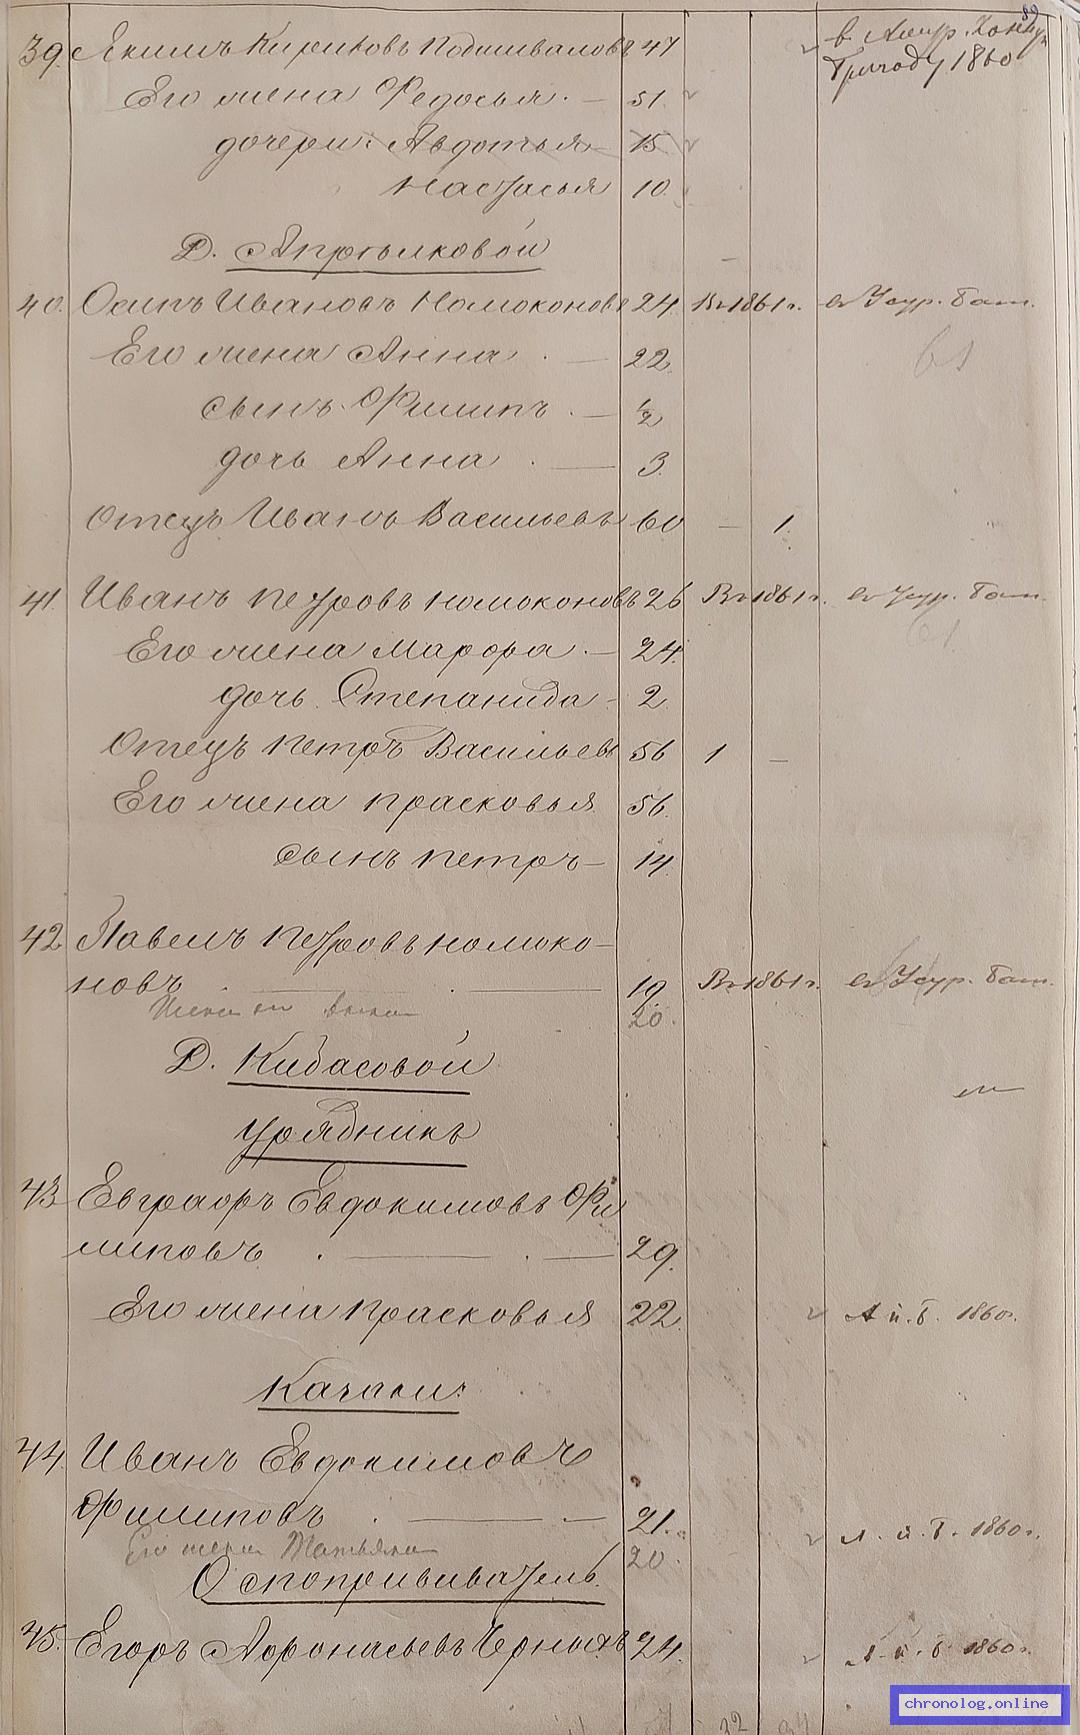 89
39. Якимъ Кириловъ Подшиваловъ 47 в. Амур. Конную
бригаду 1860
Его жена Федосья. — 51
дочери: Авдотья — 15
Настасья 10.
Д. Апрѣлковой
40. Осипъ Ивановъ Номоконовъ 24. Въ 1861 г. въ Уссур. бат.
Его жена Анна . — 22. 61
сынъ Филипъ . — 1/2
дочь Анна . — 3.
Отецъ Иванъ Васильевъ 60 — 1.
41. Иванъ Петровъ Номоконовъ 26 Въ 1861 г. въ Уссур. бат.
Его жена Марфа . — 24. 61
дочь Степанида - 2
Отецъ Петръ Васильевъ 56 1 —
Его жена Прасковья 56.
сынъ Петръ — 14.
42 Павелъ Петровъ Номоко-
новъ . — . — 19 Въ 1861 г. въ Уссур. бат.
Жена ея 20.
Д. Кибасовой
Урядникъ
43 Евграфъ Евдокимовъ Фи
липовъ . — . — 29.
Его жена Прасковья 22. А п. б. 1860 г.
Казаки:
44. Иванъ Евдокимовъ
Филиповъ . — — 21. А. п. б. 1860 г.
Его жена Татьяна 20.
Оспопрививатель.
45. Егоръ Афонасьевъ Черныхъ 24. А. п. б 1860 г.
32 34
chronolog.online